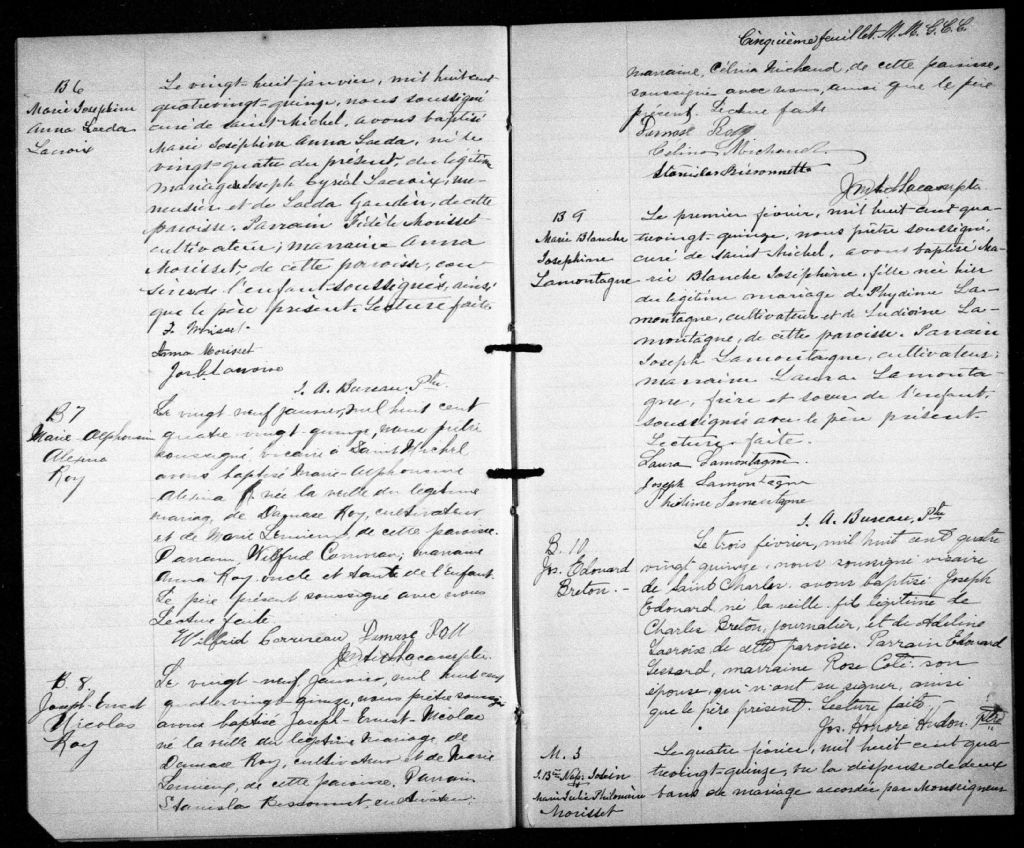 B 6
Marie Josephine
Anna Laeda
Lacroix
Le vingt-huit janvier, mil huit cent
quatrevingt-quinze, nous soussigné
curé de Saint Michel, avons baptisé
Marie Joséphine Anna Laeda, née le
vingt-quatre du présent, du légitime
mariage Joseph Lacroix, me-
nuisier et de Laeda de cette
paroisse. Parrain Fidèle Morisset
cultivateur; marraine Anna
Morisset, de cette paroisse, cou-
sins de l'enfant soussignés, ainsi
que le père présent. Lecture faite.
F. Morisset
Anna Morisset
Jos
J. A. Bureau, Ptre
B 7
Marie Alphonsine
Alexina
Roy
Le vingt neuf janvier, mil huit cent
quatre vingt-quinze, nous prêtre
soussigné, vicaire à Saint Michel
avons baptisé Marie-Alphonsine
Alexina née la veille du legitime
mariage de Damase Roy, cultivateur
et de Marie Lemieux, de cette paroisse.
Parrain, Wilfrid marraine
Anna Roy, oncle et tante de l'Enfant.
Le père présent soussigné avec nous
Lecture faite
Wilfrid Damase Roy
B. 8
Joseph-Ernest
Nicolas
Roy
Le vingt-neuf Janvier, mil huit cent
quatre vingt-quinze, nous prêtre soussi-
avons baptisé Joseph-Ernest-Nicolas
né la veille du légitime mariage de
Damase Roy, cultivateur et de Marie
Lemieux, de cette paroisse. Parrain
Stanislas cultivateur.
Cinquième feuillet. M. M. G. C. C.
marraine, Célina Michaud, de cette paroisse,
soussignés avec nous, ainsi que le père
présent. Lecture faite
Damase Roy
Celina Michaud
Stanislas Bissonnette
B 9
Marie Blanche
Josephine
Lamontagne
Le premier février, mil huit cent qua-
trevingt-quinze, nous prêtre soussigné,
curé de Saint Michel, avons baptisé Ma-
rie Blanche Joséphine, fille née hier
du légitime mariage de Phydime La-
montagne, cultivateur et de Ludivine La-
montagne, de cette paroisse. Parrain
Joseph Lamontagne, cultivateur;
marraine Laura Lamonta-
gne, frère et soeur de l'enfant,
soussignés avec le père présent.
Lecture faite.
Laura Lamontagne.
Joseph Lamontagne
Lamontagne
J. A. Bureau, Ptre
B. 10
Jos. Edouard
Breton. -
Le trois février, mil huit cent quatre
vingt quinze, nous soussigné vicaire
de Saint Charles avons baptisé Joseph
Edouard, né la veille, fils légitime de
Charles Breton, journalier, et de Adeline
Lacroix de cette paroisse. Parrain Edouard
Lessard, marraine Rose Coté son
épouse, qui n'ont su signer, ainsi
que le père présent. Lecture faite
Jos. Honoré Hudon, Ptre
M. 3
J. Bte Napn
Marie Julie Philomène
Morisset
Le quatre février, mil huit cent qua-
trevingt-quinze, vu la dispense de deux
bans de mariage accordée par Monseigneur